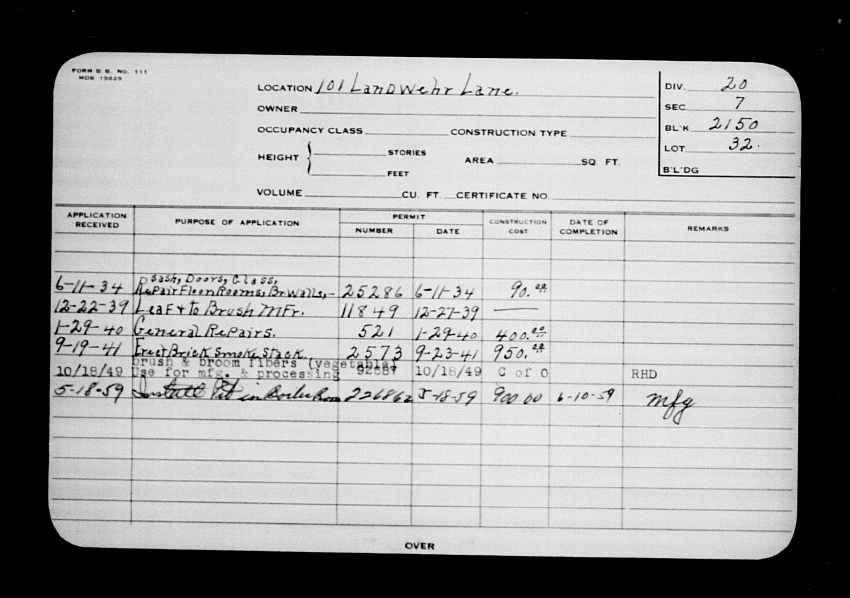 FORM B. B. No. 111
MDB 15829
LOCATION 101 Landwehr Lane.
DIV. 20
SEC. 7
BL'K 2150
LOT 32.
B'L'DG
OWNER
OCCUPANCY CLASS CONSTRUCTION TYPE
HEIGHT { STORIES
FEET
AREA SQ. FT.
VOLUME CU. FT. CERTIFICATE NO.
APPLICATION RECEIVED PURPOSE OF APPLICATION PERMIT NUMBER DATE CONSTRUCTION COST DATE OF COMPLETION REMARKS
Sash, Doors, Glass,
6-11-34 Repair Floor Rooms, Br. Walls, - 25286 6-11-34 90.00
12-22-39 to Brush Mfr. 11849 12-27-39 ——
1-29-40 General Repairs. 521 1-29-40 400.00
9-19-41 Erect Brick Smoke Stack. 2573 9-23-41 950.00
Brush & broom fibers (vegetable)
10/18/49 Use for mfg. & processing 10/18/49 C of O RHD
5-18-59 Install Pit in Boiler Room 226862 5-18-59 900.00 6-10-59 mfg
OVER